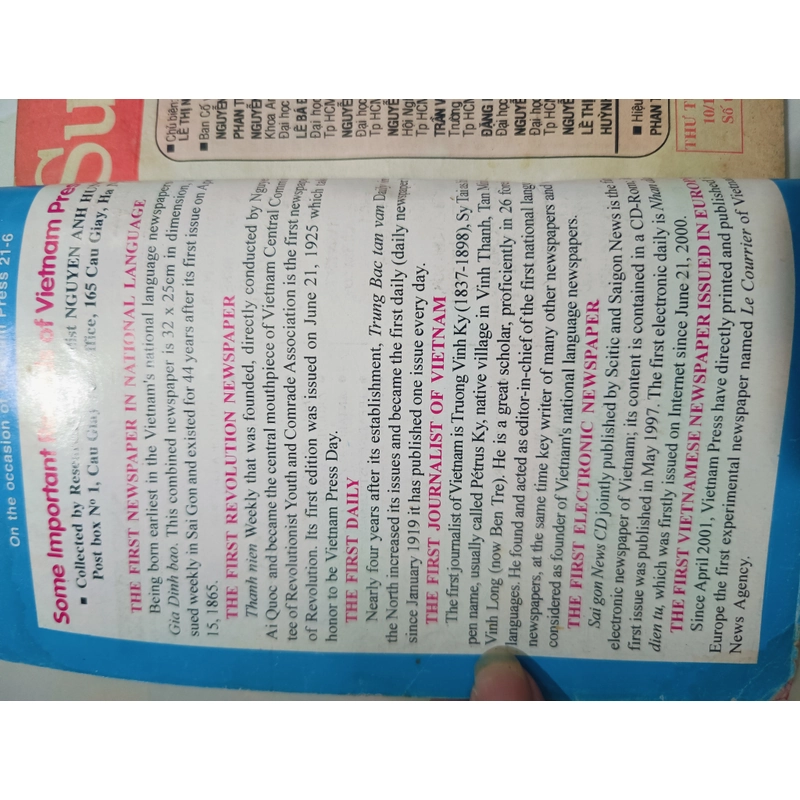 On the occasion of Press 21-6
Some Important of Vietnam Press
■ Collected by NGUYEN ANH HU
Post box Nº 1, Cau Giay ffice, 165 Cau Giay, Ha
THE FIRST NEWSPAPER IN NATIONAL LANGUAGE
Being born earliest in the Vietnam's national language newspaper,
Gia Dinh bao. This combined newspaper is 32 x 25cm in dimension,
sued weekly in Sai Gon and existed for 44 years after its first issue on Ap
15, 1865.
THE FIRST REVOLUTION NEWSPAPER
Thanh nien Weekly that was founded, directly conducted by Nguye
Ai Quoc and became the central mouthpiece of Vietnam Central Comm
tee of Revolutionist Youth and Comrade Association is the first newspap
of Revolution. Its first edition was issued on June 21, 1925 which ta
honor to be Vietnam Press Day.
THE FIRST DAILY
Nearly four years after its establishment, Trung Bac tan van Daily
the North increased its issues and became the first daily (daily newspaper
since January 1919 it has published one issue every day.
THE FIRST JOURNALIST OF VIETNAM
The first journalist of Vietnam is Truong Vinh Ky (1837-1898), Sy Tai as
pen name, usually called Pétrus Ky, native village in Vinh Thanh, Tan Mi
Vinh Long (now Ben Tre). He is a great scholar, proficiently in 26 for
languages. He found and acted as editor-in-chief of the first national lang
newspapers, at the same time key writer of many other newspapers and
considered as founder of Vietnam's national language newspapers.
THE FIRST ELECTRONIC NEWSPAPER
Sai gon News CD jointly published by Scitic and Saigon News is the fi
electronic newspaper of Vietnam; its content is contained in a CD-Rom
first issue was published in May 1997. The first electronic daily is Nhan d
dien tu, which was firstly issued on Internet since June 21, 2000.
THE FIRST VIETNAMESE NEWSPAPER ISSUED IN EUROP
Since April 2001, Vietnam Press have directly printed and published
Europe the first experimental newspaper named Le Courrier of Vietna
News Agency.
Su
■ Chủ biên:
LÊ THỊ N
■ Ban Cố
NGUYỄ
PHAN T
NGUYỄ
Khoa An
Đại học
LÊ BÁ Đ
Đại học
Tp HCM
NGUYỄ
Hội Ng
Tp HCM
TRẦN V
Trường
Tp HCM
ĐẶNG
Đại học
Tp HCM
NGUYỄ
Đại học
Tp HC
NGUYỄ
LÊ TH
HUỲNH
■ Hiệu
PHAN T
THƯ T
10/1
Số